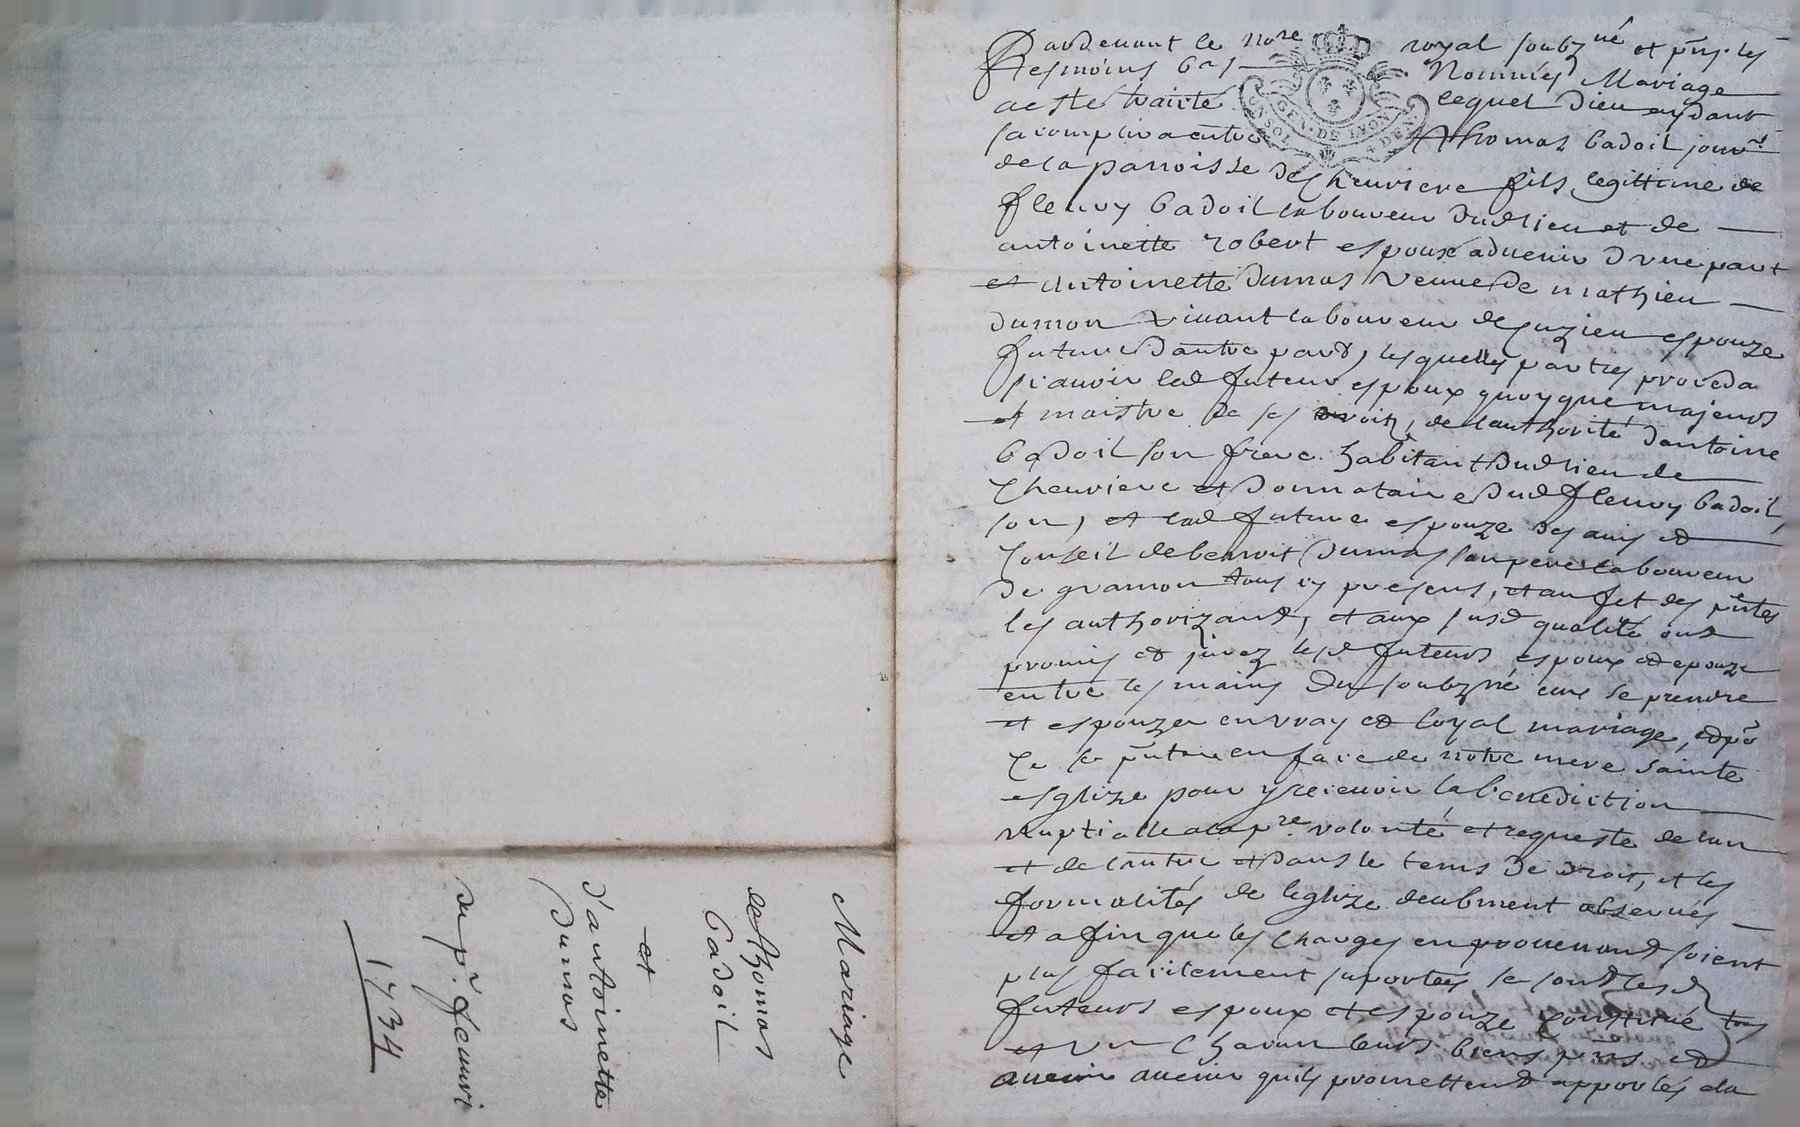 Mariage
de Thomas
Badoil
et
d'antoinette
Dumas
du pr. feuvri
1734
Pardeuant le no.re royal soubzné et pns. les
tesmoins bas Nommés Mariage
a esté traicté lequel Dieu aydant
sacomplira entre Thomas badoil jour.r
GEN. DE LYON
de la parroisse de Cheuriere fils legittime de
fleury badoil laboureur dudlieu et de
antoinette robert espoux aduenir d'vne part
et Antoinette Dumas Veuue de mathieu
dumon viuant laboureur de Cuzieu espouze
future d'autre part, lesquelles parties proceda
sçauoir led futeur espoux quoyque majeurs
et maistre de ses droitz, de l'authorité d'antoine
badoil son frere habitant dudlieu de
Cheuriere et donnataire dud fleury badoil,
son, et lad future espouze des auis et
Conseil de benoit Dumas son pere laboureur
De gramon tous icy presens, et au fet des pntes
les authorizant, et aux susd qualité ont
promis et jurez lesd futeurs espoux et epouze
entre les mains du soubzné eux se prendre
et espouzer en vray et loyal mariage, et po
Ce se pnter en face de notre mere sainte
esglize pour y receuoir la benediction
nuptialle a la pre. volonté et requeste de lun
et de lautre et dans le tems De droit, et les
formalités de leglize deubment obserués
et afin que les charges en prouenant soient
plus facilement suportées se sont lesd
futeurs espoux et espouze constitué tous
et vn chacun leurs biens pns et
auenir quils promettent apporter du